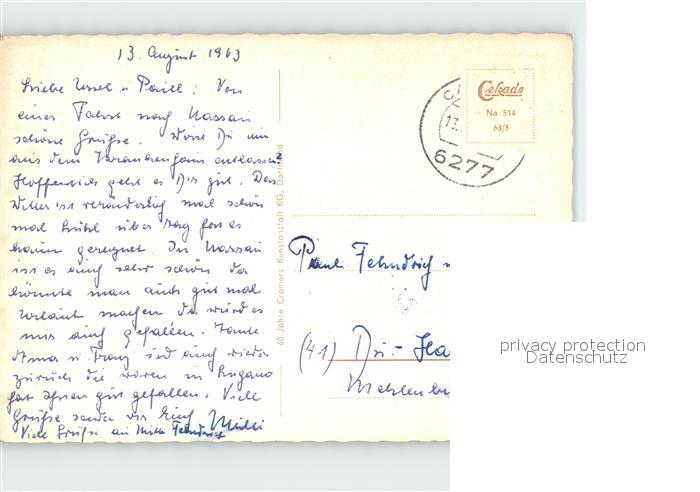 13. August 1963
Liebe Ursel u Paul: Von
einer Fahrt nach Nassau
schöne Grüße. Wirst Du nun
aus dem Krankenhaus entlassen?
Hoffentlich geht es Dir gut. Das
Wetter ist veränderlich mal schön
mal kühl über Tag hat es
kaum geregnet. In Nassau
ist es auch sehr schön da
könnte man auch gut mal
Urlaub machen da würd es
mir auch gefallen. Tante
Anna u Franz sind auch wieder
zurück die waren in Lugano
hat Ihnen gut gefallen. Viele
Grüße senden wir Euch Milli
Viele Grüße an Mutter Fehndrich
60 Jahre Cramers Kunstanstalt KG, Dortmund
Cekade
No 514
63/5
13.
6277
Paul Fehndrich u
(41) Du.-Ha
Mechlenbu
privacy protection
Datenschutz